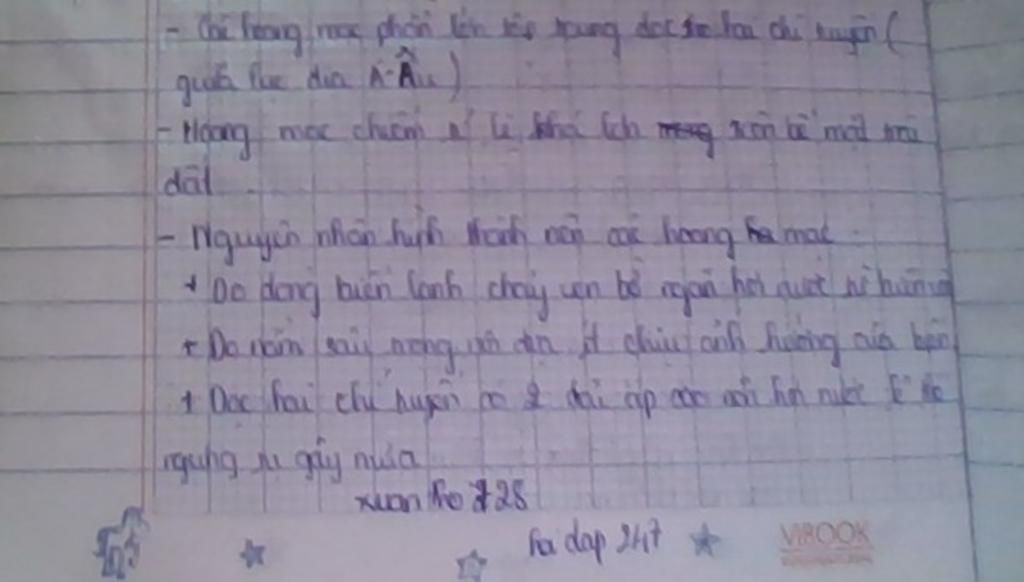 - Các hoang mạc phân lớn tập trung dọc hai chí tuyến (
giữa lục địa Á-Âu)
- Hoang mạc chiếm tỉ lệ khá lớn trên bề mặt trái
đất
- Nguyên nhân hình thành nên các hoang mạc
+ Do dòng biển lạnh chảy ven bờ ngăn hơi nước từ biển vào
+ Do nằm sâu trong nội địa ít chịu ảnh hưởng của biển
+ Dọc hai chí tuyến có 2 dải áp cao nên hơi nước
ngưng tụ gây mưa
xuan ho 728
hoi dap 247
VIBOOK